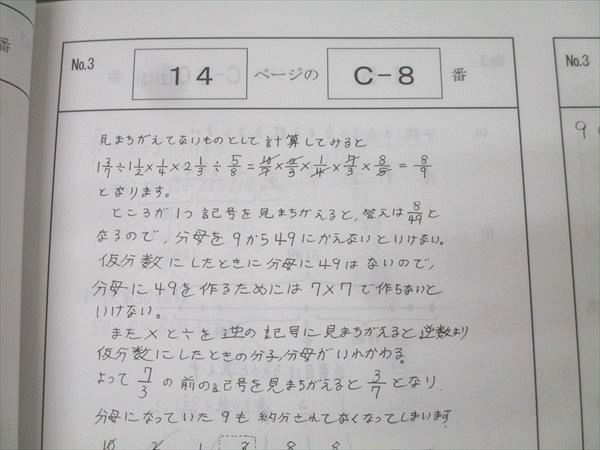 No.3
14 ページの C-8 番
No.3
見まちがえてないものとして計算してみると
1 3/7÷1 1/2×1/4×2 1/3÷5/8=10/7×2/3×1/4×7/3×8/5=8/9
となります。
ところが1つ記号を見まちがえると,答えは8/49と
なるので,分母を9から49にかえないといけない。
仮分数にしたときに分母に49はないので,
分母に49を作るためには7×7で作らないと
いけない。
また×と÷を逆の記号に見まちがえると逆数より
仮分数にしたときの分子,分母がいれかわる。
よって7/3の前の記号を見まちがえると3/7となり
分母になっていた9も約分されてなくなってしまいます